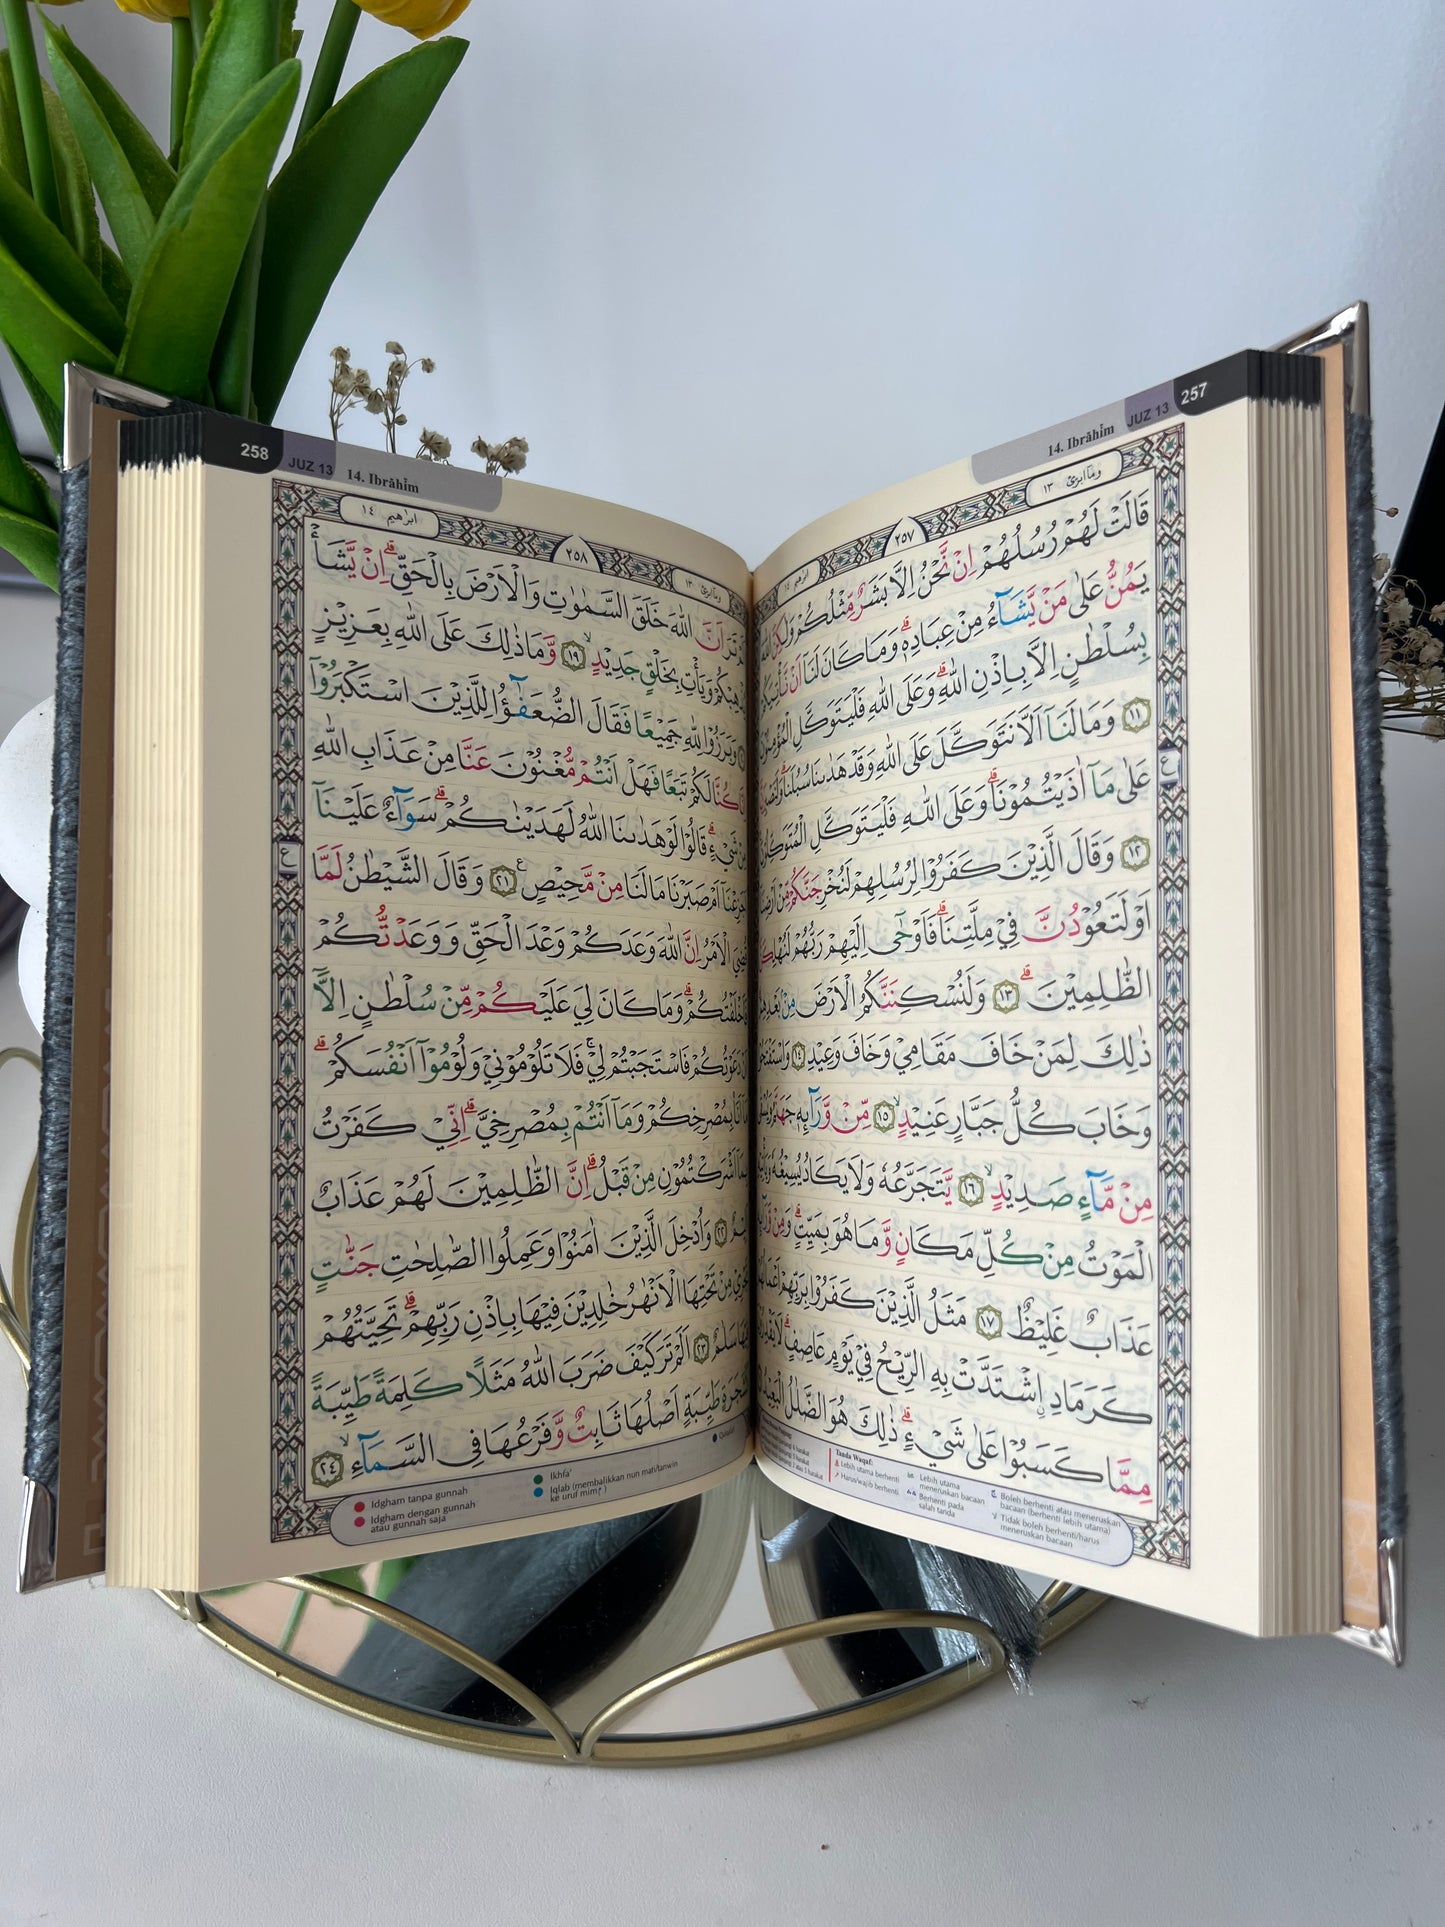 14. Ibrāhīm JUZ 13 257
وما ابرئ ١٣ ٢٥٧ ابرٰهيم ١٤
قَالَتْ لَهُمْ رُسُلُهُمْ اِنْ نَّحْنُ اِلَّا بَشَرٌ مِّثْلُكُمْ وَلٰكِنَّ اللّٰهَ
يَمُنُّ عَلٰى مَنْ يَّشَاۤءُ مِنْ عِبَادِهٖۗ وَمَا كَانَ لَنَآ اَنْ نَّأْتِيَكُمْ
بِسُلْطٰنٍ اِلَّا بِاِذْنِ اللّٰهِ ۗوَعَلَى اللّٰهِ فَلْيَتَوَكَّلِ الْمُؤْمِنُوْنَ
١١ وَمَا لَنَآ اَلَّا نَتَوَكَّلَ عَلَى اللّٰهِ وَقَدْ هَدٰىنَا سُبُلَنَاۗ
عَلٰى مَآ اٰذَيْتُمُوْنَاۗ وَعَلَى اللّٰهِ فَلْيَتَوَكَّلِ الْمُتَوَكِّلُوْنَ
١٢ وَقَالَ الَّذِيْنَ كَفَرُوْا لِرُسُلِهِمْ لَنُخْرِجَنَّكُمْ مِّنْ
اَوْ لَتَعُوْدُنَّ فِيْ مِلَّتِنَاۗ فَاَوْحٰٓى اِلَيْهِمْ رَبُّهُمْ
الظّٰلِمِيْنَۗ ١٣ وَلَنُسْكِنَنَّكُمُ الْاَرْضَ مِنْۢ
ذٰلِكَ لِمَنْ خَافَ مَقَامِيْ وَخَافَ وَعِيْدِ ١٤
وَخَابَ كُلُّ جَبَّارٍ عَنِيْدٍۙ ١٥ مِّنْ وَّرَاۤىِٕهٖ جَهَنَّمُ
مِنْ مَّاۤءٍ صَدِيْدٍۙ ١٦ يَّتَجَرَّعُهٗ وَلَا يَكَادُ يُسِيْغُهٗ
الْمَوْتُ مِنْ كُلِّ مَكَانٍ وَّمَا هُوَ بِمَيِّتٍۗ وَمِنْ
عَذَابٌ غَلِيْظٌ ١٧ مَثَلُ الَّذِيْنَ كَفَرُوْا بِرَبِّهِمْ
كَرَمَادِ ِۨاشْتَدَّتْ بِهِ الرِّيْحُ فِيْ يَوْمٍ عَاصِفٍۗ
مِمَّا كَسَبُوْا عَلٰى شَيْءٍ ۗذٰلِكَ هُوَ الضَّلٰلُ الْبَعِيْدُ
Tanda Waqaf:
Lebih utama berhenti
Harus/wajib berhenti
Lebih utama meneruskan bacaan
Berhenti pada salah tanda
Boleh berhenti atau meneruskan bacaan (berhenti lebih utama)
Tidak boleh berhenti/harus meneruskan bacaan
258 JUZ 13 14. Ibrāhīm
وما ابرئ ١٣ ٢٥٨ ابرٰهيم ١٤
تَرَ اَنَّ اللّٰهَ خَلَقَ السَّمٰوٰتِ وَالْاَرْضَ بِالْحَقِّۗ اِنْ يَّشَأْ
وَيَأْتِ بِخَلْقٍ جَدِيْدٍۙ ١٩ وَّمَا ذٰلِكَ عَلَى اللّٰهِ بِعَزِيْزٍ
وَبَرَزُوْا لِلّٰهِ جَمِيْعًا فَقَالَ الضُّعَفٰۤؤُا لِلَّذِيْنَ اسْتَكْبَرُوْٓا
كُنَّا لَكُمْ تَبَعًا فَهَلْ اَنْتُمْ مُّغْنُوْنَ عَنَّا مِنْ عَذَابِ اللّٰهِ
شَيْءٍ ۗقَالُوْا لَوْ هَدٰىنَا اللّٰهُ لَهَدَيْنٰكُمْۗ سَوَاۤءٌ عَلَيْنَآ
اَمْ صَبَرْنَا مَا لَنَا مِنْ مَّحِيْصٍ ٢١ وَقَالَ الشَّيْطٰنُ لَمَّا
الْاَمْرُ اِنَّ اللّٰهَ وَعَدَكُمْ وَعْدَ الْحَقِّ وَوَعَدْتُّكُمْ
فَاَخْلَفْتُكُمْۗ وَمَا كَانَ لِيَ عَلَيْكُمْ مِّنْ سُلْطٰنٍ اِلَّآ
دَعَوْتُكُمْ فَاسْتَجَبْتُمْ لِيْۚ فَلَا تَلُوْمُوْنِيْ وَلُوْمُوْٓا اَنْفُسَكُمْۗ
بِمُصْرِخِكُمْ وَمَآ اَنْتُمْ بِمُصْرِخِيَّۗ اِنِّيْ كَفَرْتُ
اَشْرَكْتُمُوْنِ مِنْ قَبْلُۗ اِنَّ الظّٰلِمِيْنَ لَهُمْ عَذَابٌ
٢٢ وَاُدْخِلَ الَّذِيْنَ اٰمَنُوْا وَعَمِلُوا الصّٰلِحٰتِ جَنّٰتٍ
مِنْ تَحْتِهَا الْاَنْهٰرُ خٰلِدِيْنَ فِيْهَا بِاِذْنِ رَبِّهِمْۗ تَحِيَّتُهُمْ
سَلٰمٌ ٢٣ اَلَمْ تَرَ كَيْفَ ضَرَبَ اللّٰهُ مَثَلًا كَلِمَةً طَيِّبَةً
طَيِّبَةٍ اَصْلُهَا ثَابِتٌ وَّفَرْعُهَا فِى السَّمَاۤءِۙ ٢٤
Idgham tanpa gunnah
Idgham dengan gunnah atau gunnah saja
Ikhfa'
Iqlab (membalikkan nun mati/tanwin ke uruf mim م)
Qalqalah